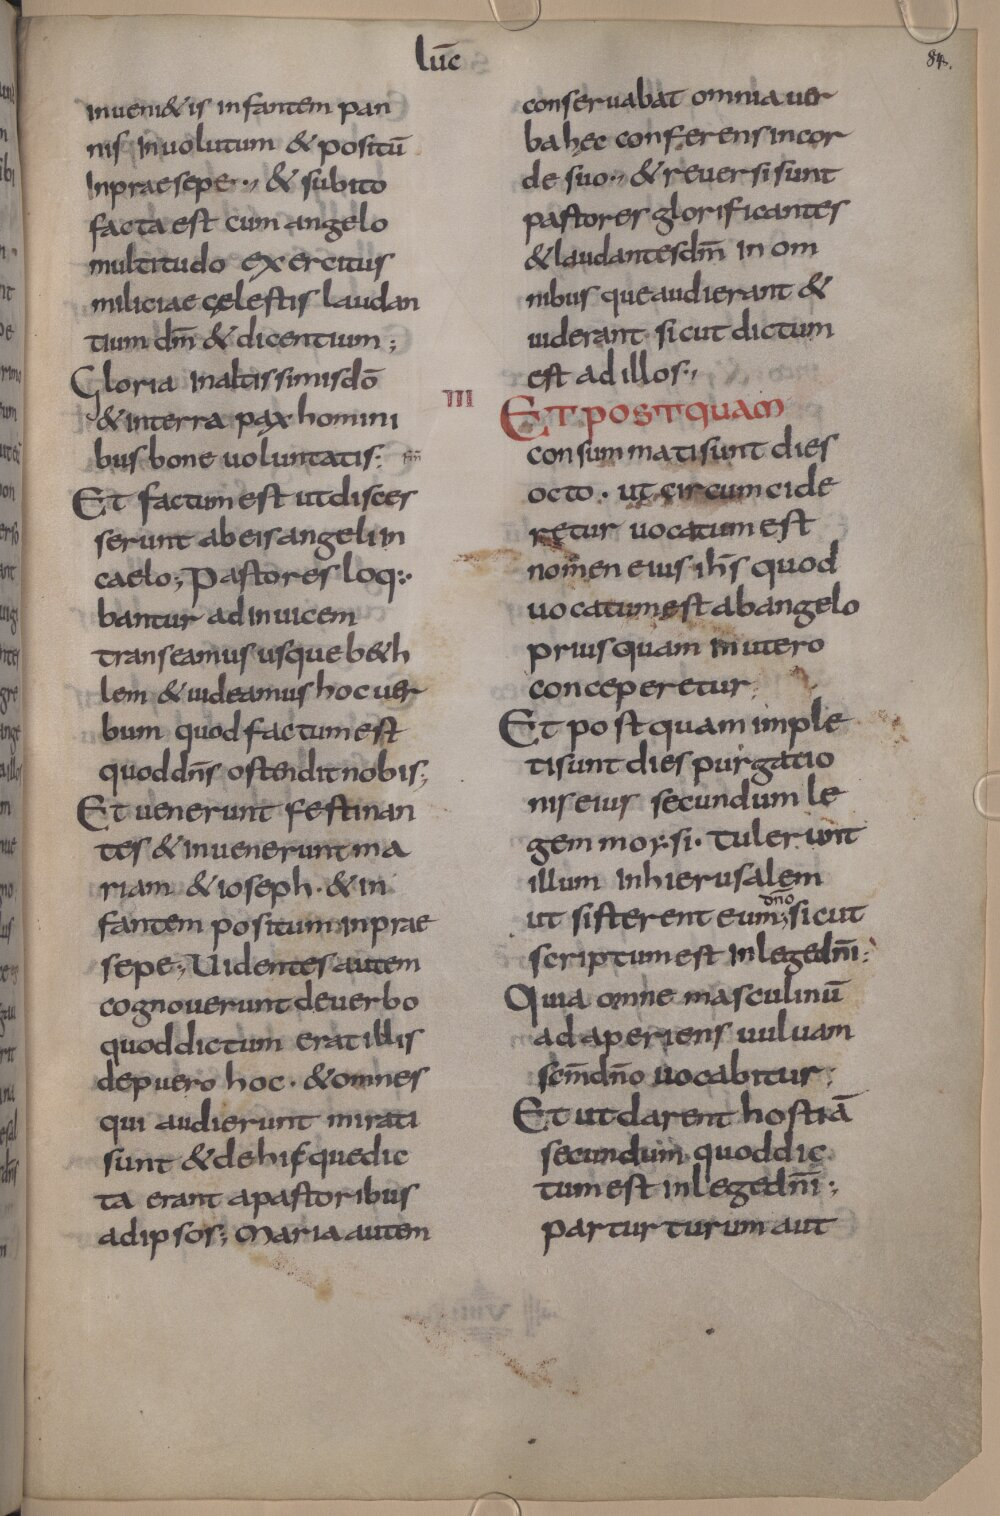 luc̄
84.
inueni&is infantem pan
nis inuolutum & positū
inpraesepe·,, & subito
facta est cum angelo
multitudo exercitus
miliciae cęlestis laudan
tium dm̄ & dicentium;
Gloria inaltissimisdō
& interra pax homini
bus bone uoluntatis:
Et factum est utdisces
serunt abeis angeli in
caelo; Pastores loq:·
bantur adinuicem
transeamus usque b&h
lem & uideamus hoc uer
bum quod factum est
quod dn̄s ostendit nobis;
Et uenerunt festinan
tes & inuenerunt ma
riam & ioseph · & in
fantem positum inprae
sepe; Uidentes autem
cognouerunt deuerbo
quod dictum erat illis
depuero hoc · & omnes
qui audierunt mirati
sunt & dehis quedic
ta erant apastoribus
adipsos; Maria autem
conseruabat omnia uer
ba hec conferens incor
de suo·,, & reuersi sunt
pastores glorificantes
& laudantes dm̄ in om
nibus que audierant &
uiderant sicut dictum
est ad illos·,
III Et postquam
consummati sunt dies
octo · ut circumcide
retur uocatum est
nomen eius ih̄s quod
uocatum est abangelo
priusquam inutero
conceperetur
Et postquam imple
ti sunt dies purgatio
nis eius secundum le
gem moysi · Tulerunt
illum inhierusalem
dn̄o
ut sisterent eum; sicut
scriptum est inlege dn̄i:
Quia omne masculinū
adaperiens uuluam
scm̄ dn̄o uocabitur;
Et utdarent hostiā
secundum quod dic
tum est inlege dn̄i;
par turturum aut